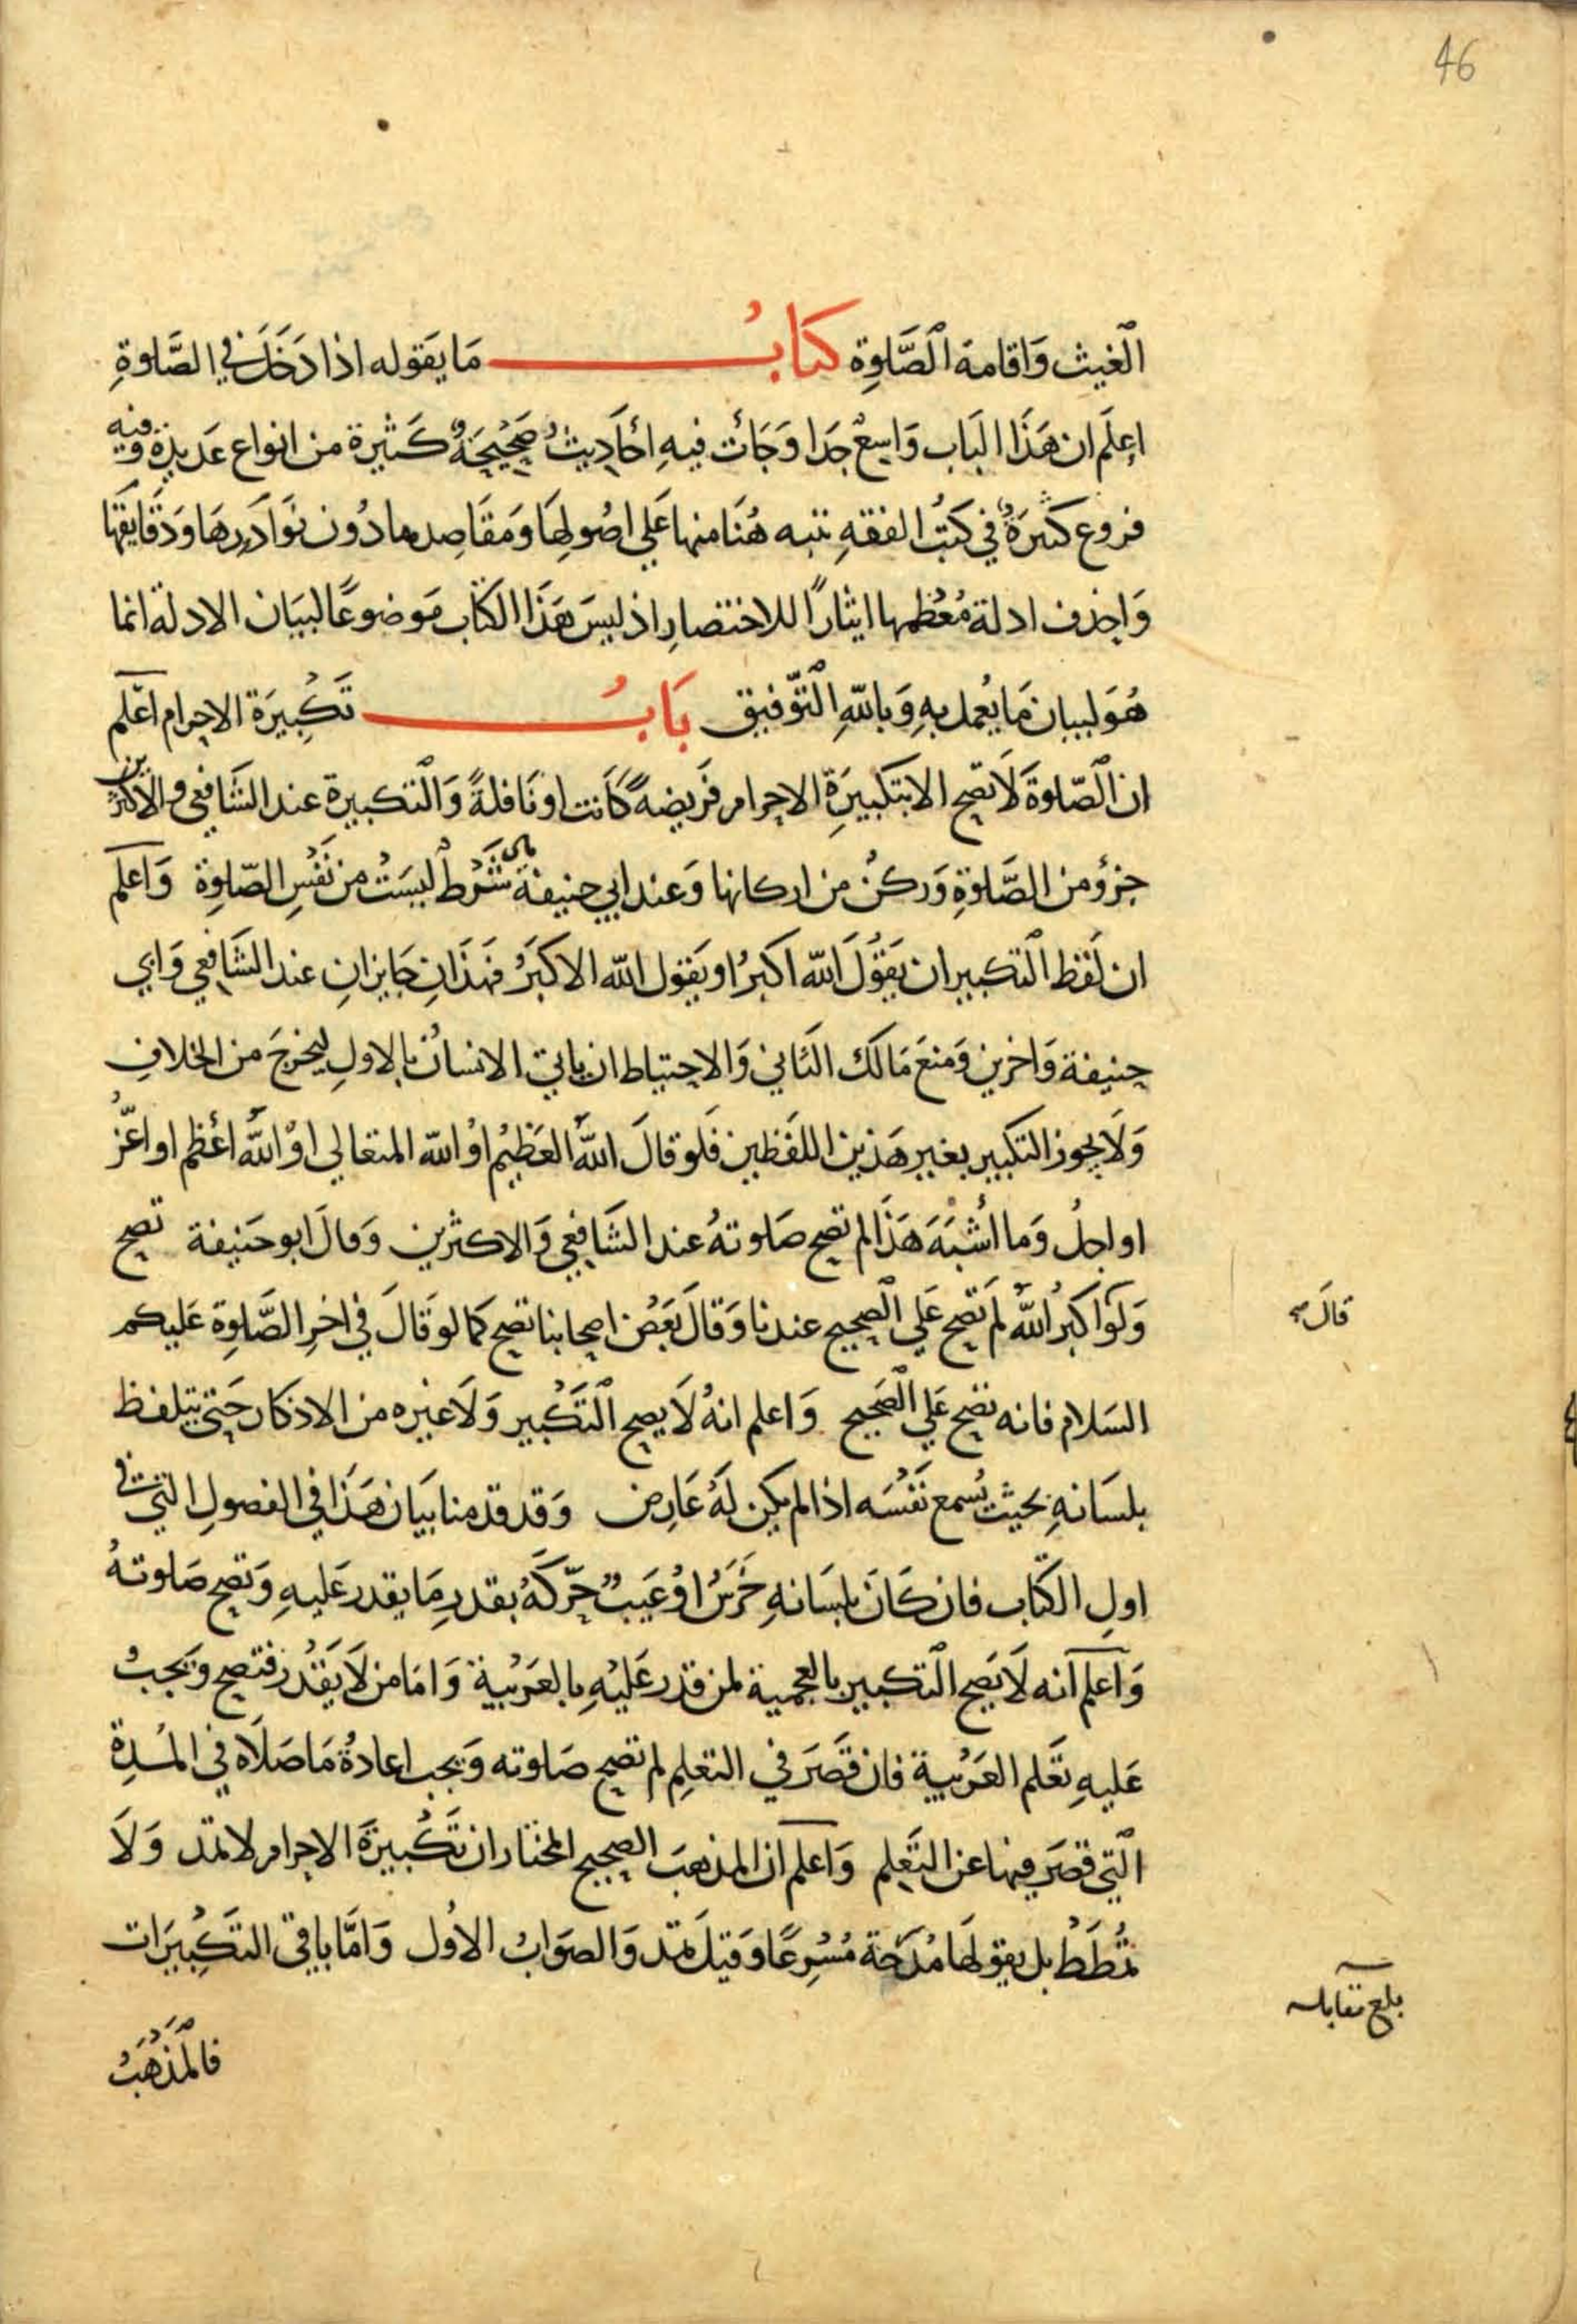 46
الغيث وَاقامة الصَّلوةِ كتابُ مَا يَقوله اذا دَخَلَ في الصَّلوةِ
اِعلَم ان هَذَا البَاب وَاسِعٌ جدا وَجَاَت فيهِ احَادِيثُ صَحِيحَةٌ كَثيرة من انواع عَديدة وفيه
فروع كثيرَةٌ في كتبُ الفقهِ ننبه هُنَا منها عَلي اصُولِهَا وَمقَاصِدها دُون نوَادرهَا وَدقَايقهَا
وَاحذف ادلة مُعُظمها ايثارًا للاختصارِ اذ ليسَ هَذَا الكتاب مَوضوعًا لبيَان الادلة انما
هُوَ لبيان مَا يُعمل بهِ وَباللهِ التّوفيق بَابُ تَكبِيرَة الاحرام اعَلم
ان الصّلوةَ لَا تصح الا بتكبيرَةِ الاحرام فَريضةً كَانت او نَافلةً وَالتكبيرة عند الشَافعي والاكثرين
جزؤ من الصَّلوةِ وَركنٌ من اركانها وَعند ابي حنيفة هي شَرطٌ ليسَتُ من نَفْسِ الصّلوةِ وَاعلم
ان لَفظ التكبير ان يَقُولَ الله اكبرُ او يَقول الله الاكبَرُ فهَذَانِ جَايزانِ عند الشَافِعي وَابي
حنيفة وَاخرين وَمنعَ مَالك الثَاني وَالاحتياط ان ياتي الانسانُ بالاولِ ليخرجَ من الخلافِ
وَلَا يجوز التكبير بغير هَذين اللفَظين فَلو قالَ اللهُ العَظيمُ اوُ الله المتعالي اوْ اللهُ اعْظم او اعَزُّ
او اجلُ وَما اُشْبَهَ هَذَا لم تصح صَلوتهُ عند الشَافِعي وَالاكثرين وَقالَ ابو حَنيفة تصح
وَلَو اكبرُ اللهُ لم تَصح عَلي الصحيح عندنا وَقالَ بَعَضُ اصحابنا تصح كما لو قَالَ في اخرِ الصَّلوةِ عَليكم
قالَ صح
السَلام فانه تصح عَلي الصحيح وَاعلم انهُ لَا يصح التَكبير وَلَا غيره من الاذكار حَتي يتلفظ
بلسَانهِ بحيث يُسمع نَفْسَه اذا لم يكن لَهُ عَارِض وَقد قدمنا بيَان هَذَا في الفصولِ التي في
اولِ الكتاب فان كَانَ بلسَانهِ خَرَسُ اوُ عَيبٌ حرّكَهُ بقدرِ مَا يقدر عَليهِ وَتصح صَلوتهُ
وَاعلم انه لَا يَصح التكبير بالعجمية لمن قدر عَليْهِ بالعَرَبيةِ وَامَا من لَا يَقْدُر فتصح وَيجبُ
عَليهِ تَعَلم العَرَبيةِ فان قَصَرَ في التعلمِ لم تصح صَلوته وَيجب اعادةُ مَا صَلَاه في المُدةِ
التي قصَر فيها عن التَعلم وَاعلم ان المذهبَ الصحيح المختار ان تَكْبيرَةَ الاحرام لا تمد وَلَا
تُمطط بل يقولهَا مُدرَجة مُسْرِعًا وَقيلَ تمد وَالصوَابُ الاوُل وَامَّا باقي التكَبِيَرات
بلغ مقابلة
فالمذْهَبُ